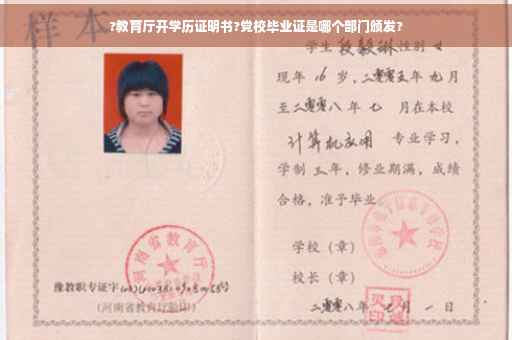 ?教育厅开学历证明书?党校毕业证是哪个部门颁发?
样本
学生 段毅琳 性别 女
现年 16 岁，二零零五年 九 月
至二零零八 年 七 月在本校
计算机应用 专业学习，
学制 三 年，修业期满，成绩
合格，准予毕业
学校（章）
校长（章）
二零零八年 七 月 一 日
河南省教育厅
豫教职专证字
(河南省教育厅验印)